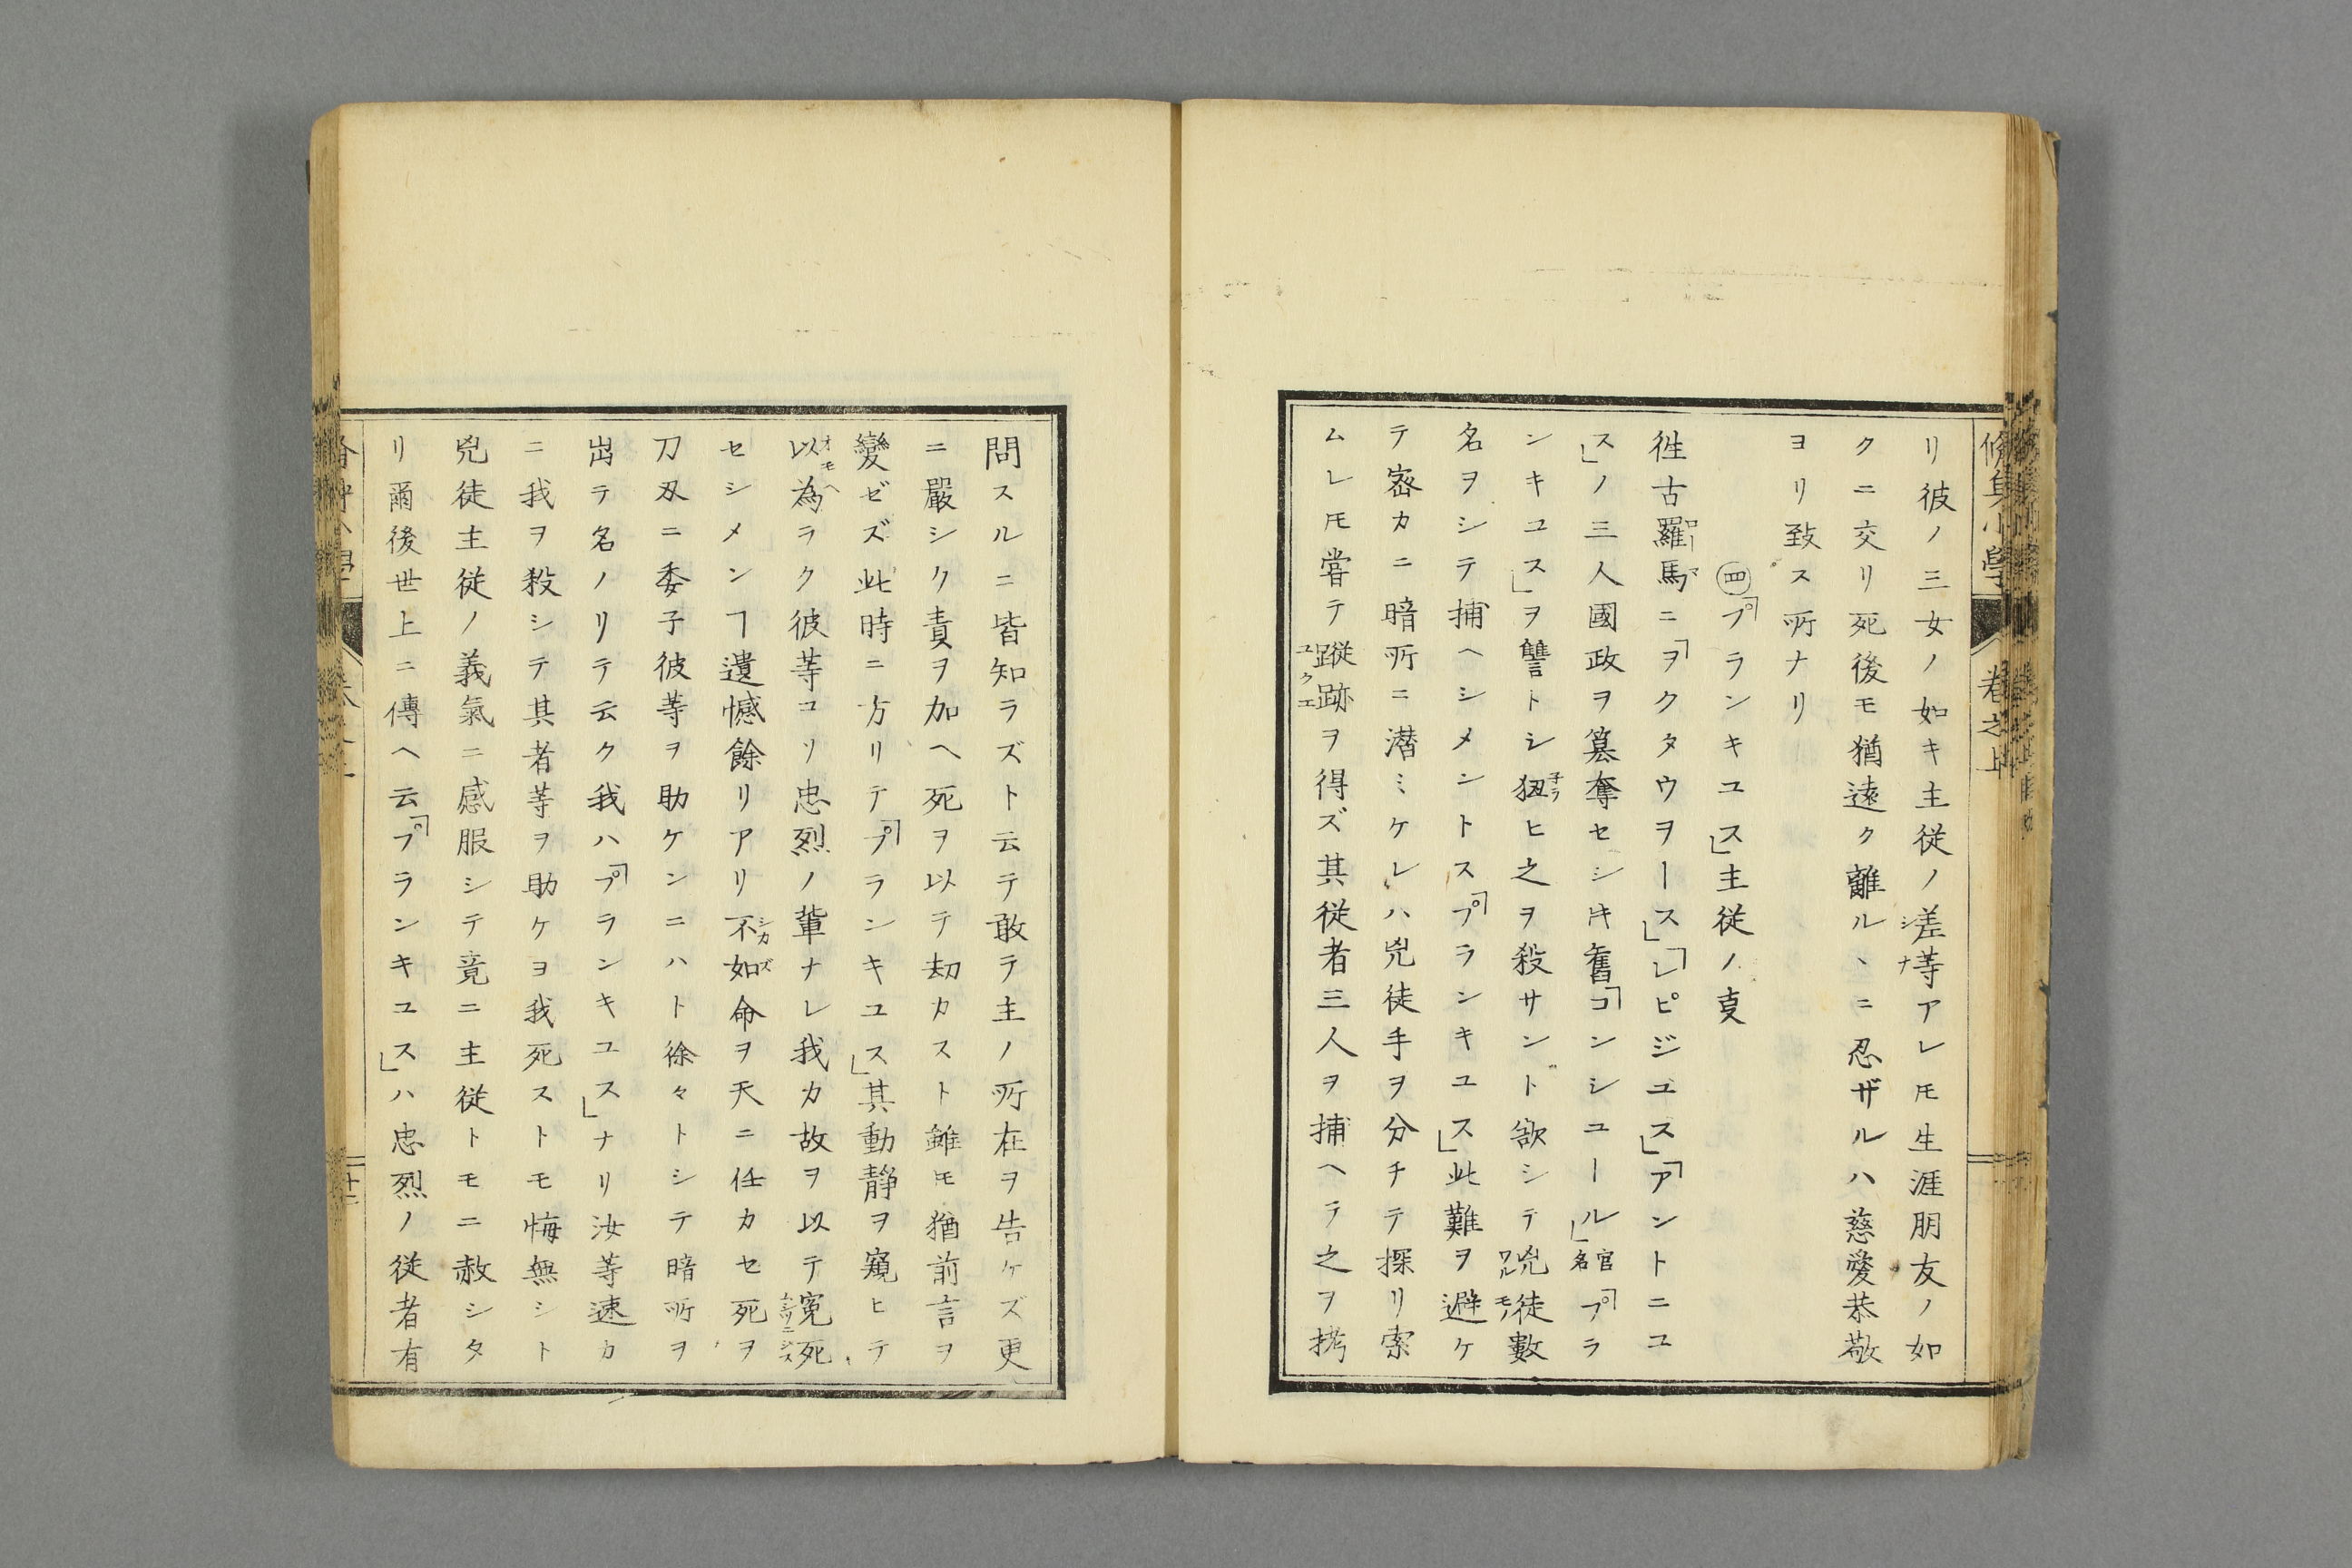 脩身小學
卷之上
リ彼ノ三女ノ如キ主従ノ差等アレ𪜈生涯朋友ノ如
シナ
クニ交リ死後モ猶遠ク離ル、ニ忍ザルハ慈愛恭敬
ヨリ致ス所ナリ
㊃「プランキユス」主従ノ㕝
徃古羅馬ニ「ヲクタウヲース」「レピジユス」「アントニユ
ローマ
ス」ノ三人國政ヲ簒奪セシ𪜀舊「コンシユール」官名「プラ
ンキユス」ヲ讐トシ狃ヒ之ヲ殺サント欲シテ兇徒數
子ラ
ワルモノ
名ヲシテ捕ヘシメントス「プランキユス」此難ヲ避ケ
テ宻カニ暗所ニ潜ミケレハ兇徒手ヲ分チテ探リ索
ムレ𪜈嘗テ蹤跡ヲ得ズ其従者三人ヲ捕ヘテ之ヲ拷
ユクエ
問スルニ皆知ラズト云テ敢テ主ノ所在ヲ告ケズ更
ニ嚴シク責ヲ加ヘ死ヲ以テ刧カスト雖𪜈猶前言ヲ
變ゼズ此時ニ方リテ「プランキユス」其動静ヲ窺ヒテ
以為ラク彼等コソ忠烈ノ輩ナレ我カ故ヲ以テ寃死
オモヘ
ムジツニジス
セシメンヿ遺憾餘リアリ不如命ヲ天ニ任カセ死ヲ
シカズ
刀刄ニ委子彼等ヲ助ケンニハト徐々トシテ暗所ヲ
出テ名ノリテ云ク我ハ「プランキユス」ナリ汝等速カ
ニ我ヲ殺シテ其者等ヲ助ケヨ我死ストモ悔無シト
兇徒主従ノ義氣ニ感服シテ竟ニ主従トモニ赦シタ
リ爾後世上ニ傳ヘ云「プランキユス」ハ忠烈ノ従者有